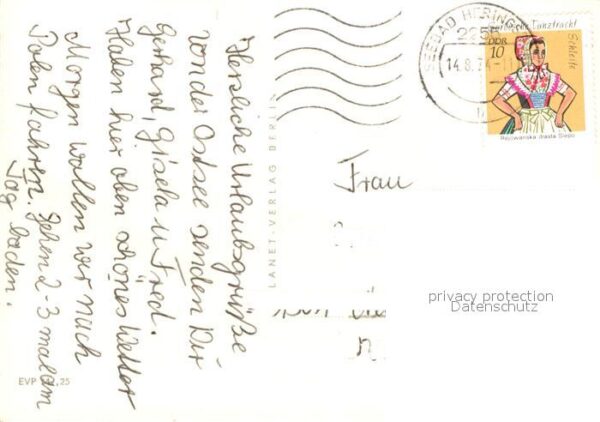 Herzliche Urlaubsgrüße
von der Ostsee senden Dir
Gerhard, Gisela u. Fred.
Haben hier oben schönes Wetter
Morgen wollen wir nach
Polen fahren. Gehen 2-3 mal am
Tag baden.
EVP
,25
PLANET-VERLAG BERLIN
SEEBAD HERINGS
2255
14.8.74-11
Tanztracht
Schleife
DDR
10
Rejowanska drasta Slepo
Frau
privacy protection
Datenschutz